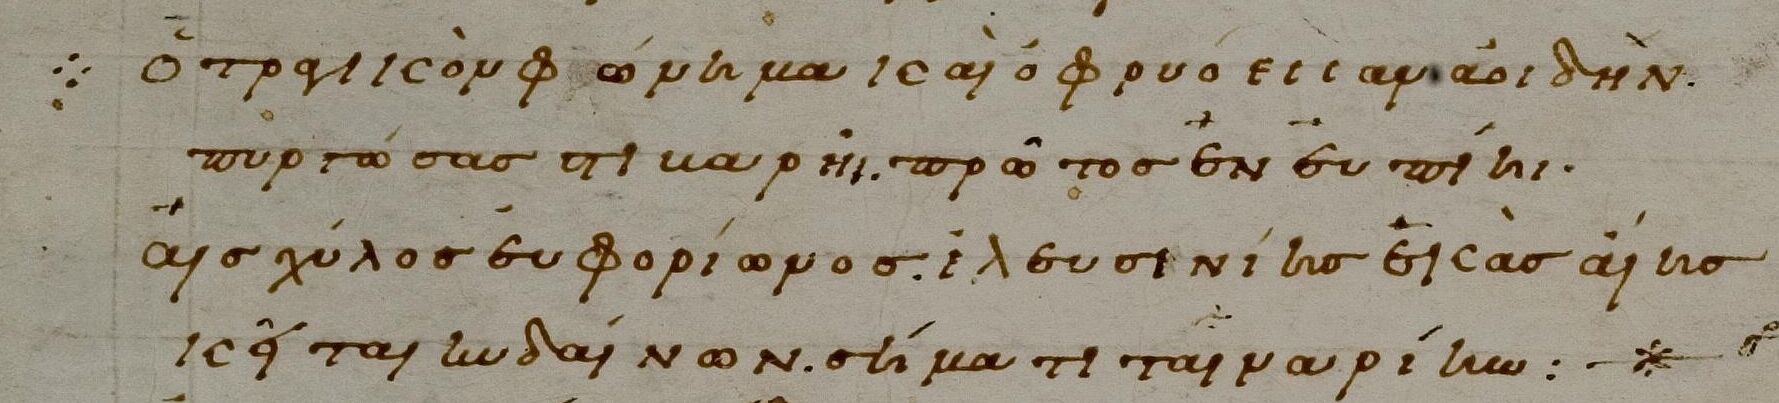 ὁ τραγικὸν φώνημα καὶ ὀφρυόεσσαν ἀοιδὴν.
πυργώσας στιβαρῆι. πρῶτος ἐν εὐεπίηι.
αἰσχύλος εὐφορίωνος. ἐλευσινίης ἑκὰς αἴης
κεῖται κυδαίνων. σήματι τρινακρίην :